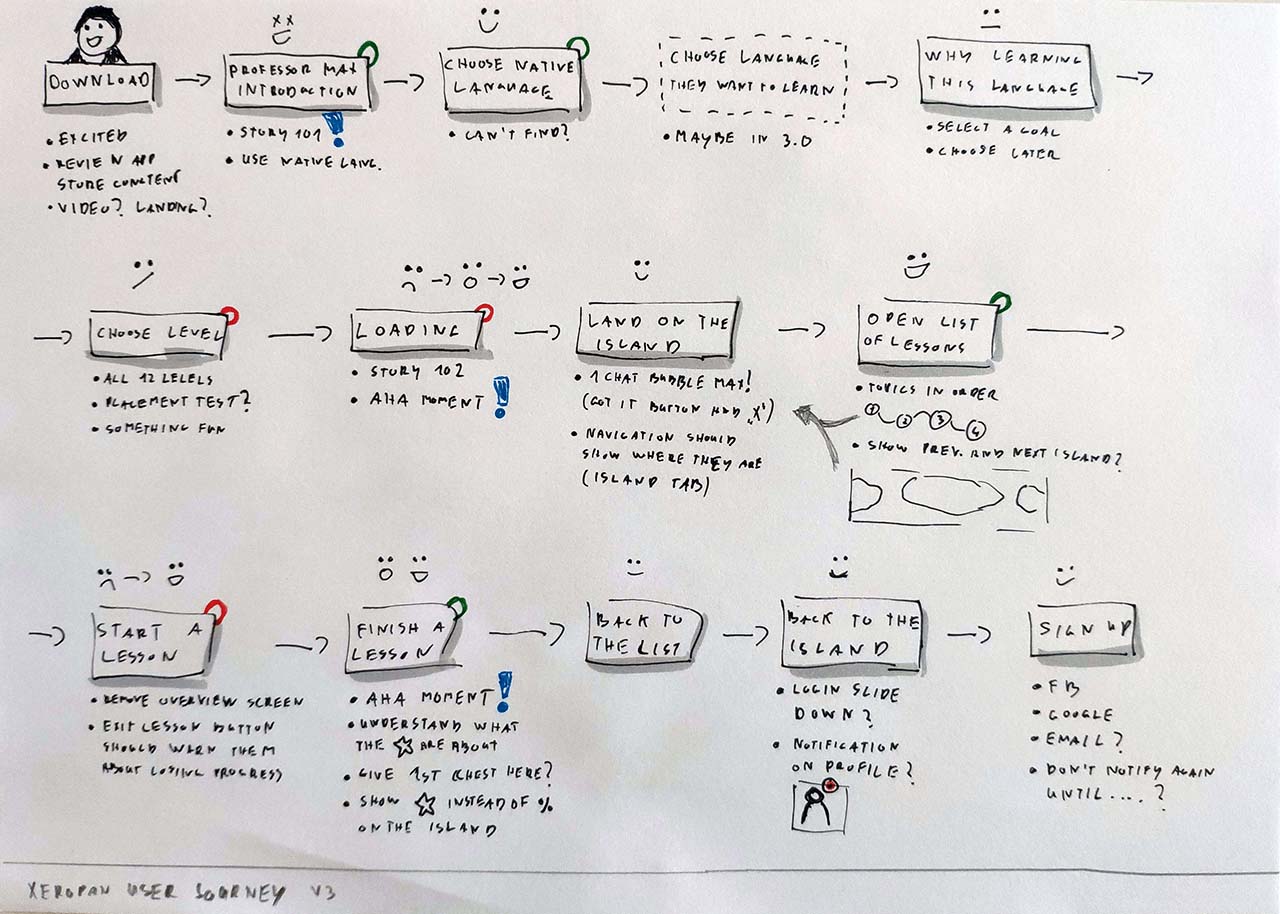 DOWNLOAD
• EXCITED
• REVIEW APP
STORE CONTENT
• VIDEO? LANDING?
PROFESSOR MAX
INTRODUCTION
• STORY 101 !
• USE NATIVE LANG.
CHOOSE NATIVE
LANGUAGE
• CAN'T FIND?
CHOOSE LANGUAGE
THEY WANT TO LEARN
• MAYBE IN 3.0
WHY LEARNING
THIS LANGUAGE
• SELECT A GOAL
• CHOOSE LATER
CHOOSE LEVEL
• ALL 12 LELELS
• PLACEMENT TEST?
• SOMETHING FUN
LOADING
• STORY 102
• AHA MOMENT !
LAND ON THE
ISLAND
• 1 CHAT BUBBLE MAX!
(GOT IT BUTTON AND „X")
• NAVIGATION SHOULD
SHOW WHERE THEY ARE
(ISLAND TAB)
OPEN LIST
OF LESSONS
• TOPICS IN ORDER
1 2 3 4
• SHOW PREV. AND NEXT ISLAND?
START A
LESSON
• REMOVE OVERVIEW SCREEN
• EXIT LESSON BUTTON
SHOULD WARN THEM
ABOUT LOSING PROGRESS
FINISH A
LESSON
• AHA MOMENT !
• UNDERSTAND WHAT
THE ☆ ARE ABOUT
• GIVE 1ST CHEST HERE?
• SHOW ☆ INSTEAD OF %
ON THE ISLAND
BACK TO
THE LIST
BACK TO THE
ISLAND
• LOGIN SLIDE
DOWN?
• NOTIFICATION
ON PROFILE?
SIGN UP
• FB
• GOOGLE
• EMAIL?
• DON'T NOTIFY AGAIN
UNTIL....?
XEROPAN USER JOURNEY V3